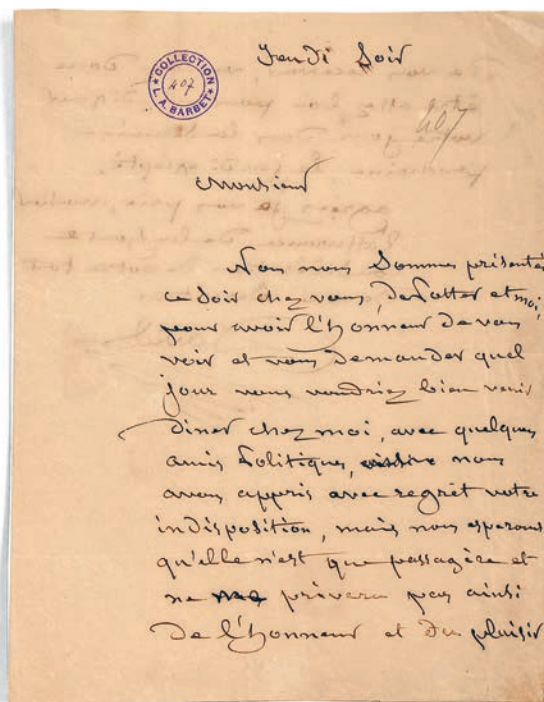 Jeudi Soir
COLLECTION
407
L. A. BARBET
407
Monsieur
Nous nous sommes présentés
ce soir chez vous, de Potter et moi,
pour avoir l'honneur de vous
voir et vous demander quel
jour vous voudriez bien venir
diner chez moi, avec quelques
amis politiques, nous
avons appris avec regret votre
indisposition, mais nous esperons
qu'elle n'est que passagère et
ne me privera pas ainsi
De l'honneur et du plaisir